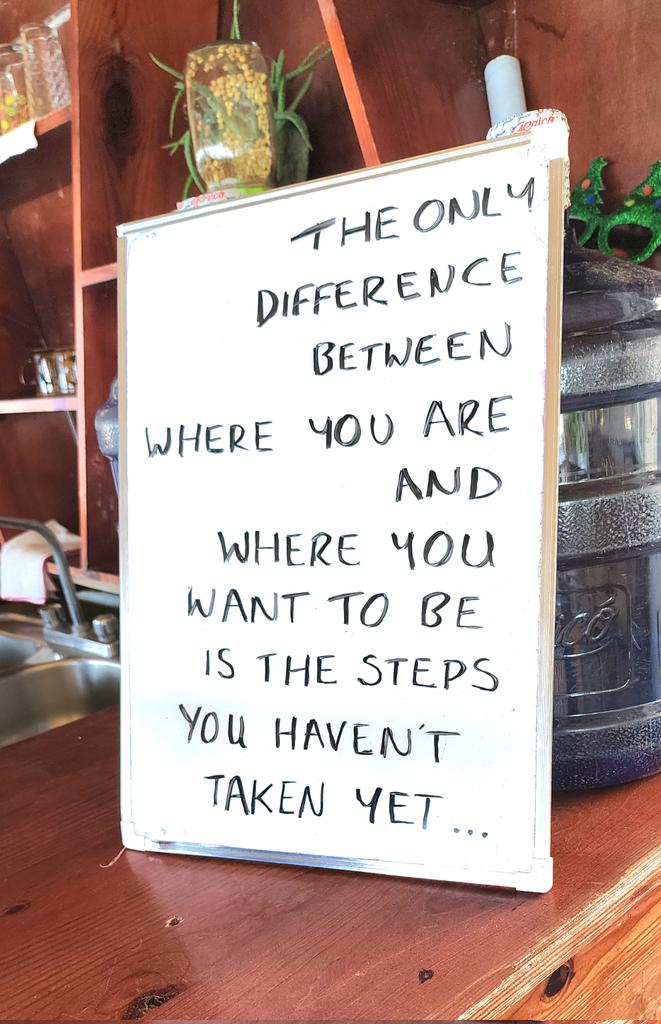 THE ONLY
DIFFERENCE
BETWEEN
WHERE YOU ARE
AND
WHERE YOU
WANT TO BE
IS THE STEPS
YOU HAVEN'T
TAKEN YET...